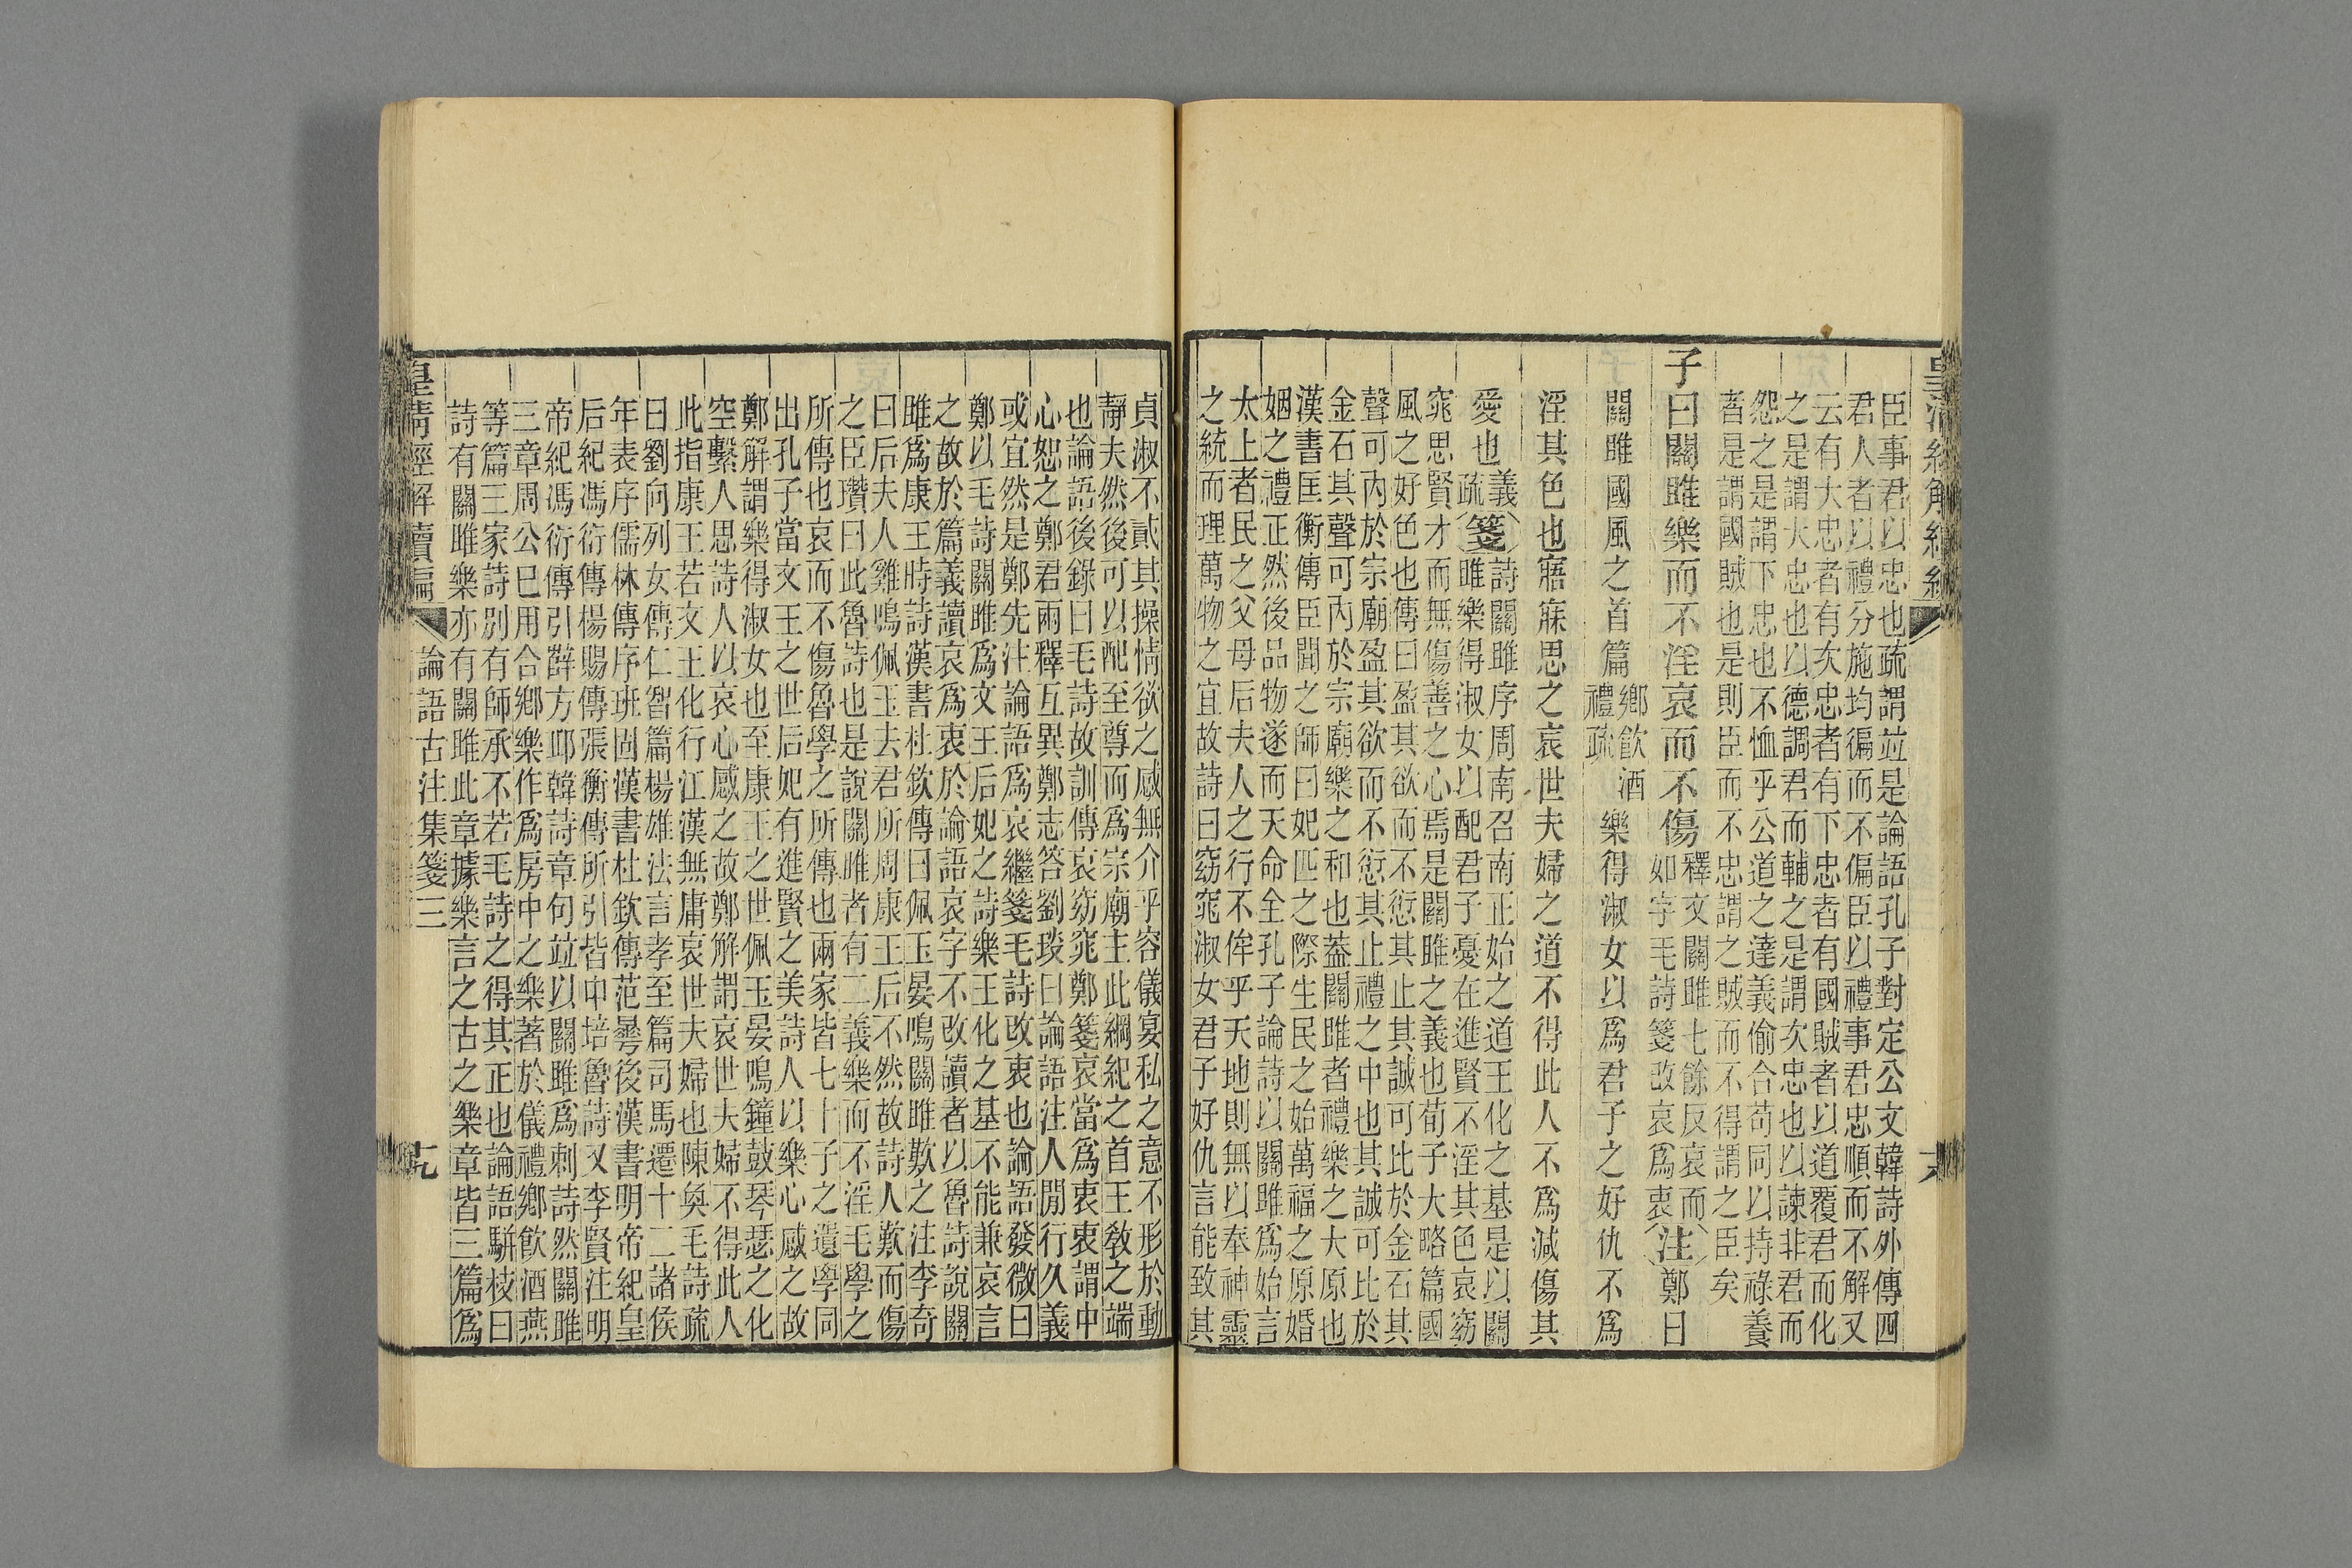 皇清經解續編
臣事君以忠也疏謂竝是論語孔子對定公文韓詩外傳四
君人者以禮分施均徧而不偏臣以禮事君忠順而不解又
云有大忠者有次忠者有下忠者有國賊者以道覆君而化
之是謂大忠也以德調君而輔之是謂次忠也以諫非君而
怨之是謂下忠也不恤乎公道之達義偷合苟同以持祿養
者是謂國賊也是則臣而不忠謂之賊而不得謂之臣矣
子曰關雎樂而不淫哀而不傷
釋文關雎七餘反哀而
如字毛詩箋改哀爲衷
注
鄭曰
關雎國風之首篇
鄉飲酒
禮疏
樂得淑女以爲君子之好仇不爲
淫其色也寤寐思之哀世夫婦之道不得此人不爲減傷其
愛也
義
疏
箋
詩關雎序周南召南正始之道王化之基是以關
雎樂得淑女以配君子憂在進賢不淫其色哀窈
窕思賢才而無傷善之心焉是關雎之義也荀子大略篇國
風之好色也傳曰盈其欲而不愆其止其誠可比於金石其
聲可內於宗廟盈其欲而不愆其止禮之中也其誠可比於
金石其聲可內於宗廟樂之和也葢關雎者禮樂之大原也
漢書匡衡傳臣聞之師曰妃匹之際生民之始萬福之原婚
姻之禮正然後品物遂而天命全孔子論詩以關雎爲始言
太上者民之父母后夫人之行不侔乎天地則無以奉神靈
之統而理萬物之宜故詩曰窈窕淑女君子好仇言能致其
貞淑不貳其操情欲之感無介乎容儀宴私之意不形於動
靜夫然後可以配至尊而爲宗廟主此綱紀之首王教之端
也論語後錄曰毛詩故訓傳哀窈窕鄭箋哀當爲衷衷謂中
心恕之鄭君兩釋互異鄭志答劉琰曰論語注人閒行久義
或宜然是鄭先注論語爲哀繼箋毛詩改衷也論語發微曰
鄭以毛詩關雎爲文王后妃之詩樂王化之基不能兼哀言
之故於篇義讀哀爲衷於論語哀字不改讀者以魯詩說關
雎爲康王時詩漢書杜欽傳曰佩玉晏鳴關雎歎之注李奇
曰后夫人雞鳴佩玉去君所周康王后不然故詩人歎而傷
之臣瓚曰此魯詩也是說關雎者有二義樂而不淫毛學之
所傳也哀而不傷魯學之所傳也兩家皆七十子之遺學同
出孔子當文王之世后妃有進賢之美詩人以樂心感之故
鄭解謂樂得淑女也至康王之世佩玉晏鳴鐘鼓琴瑟之化
空繫人思詩人以哀心感之故鄭解謂哀世夫婦不得此人
此指康王若文王化行江漢無庸哀世夫婦也陳奐毛詩疏
曰劉向列女傳仁智篇楊雄法言孝至篇司馬遷十二諸侯
年表序儒林傳序班固漢書杜欽傳范曅後漢書明帝紀皇
后紀馮衍傳楊賜傳張衡傳所引皆申培魯詩又李賢注明
帝紀馮衍傳引薛方邱韓詩章句竝以關雎爲刺詩然關雎
三章周公已用合鄉樂作爲房中之樂著於儀禮鄉飲酒燕
等篇三家詩別有師承不若毛詩之得其正也論語駢枝曰
詩有關雎樂亦有關雎此章據樂言之古之樂章皆三篇爲
皇清經解續編
論語古注集箋三